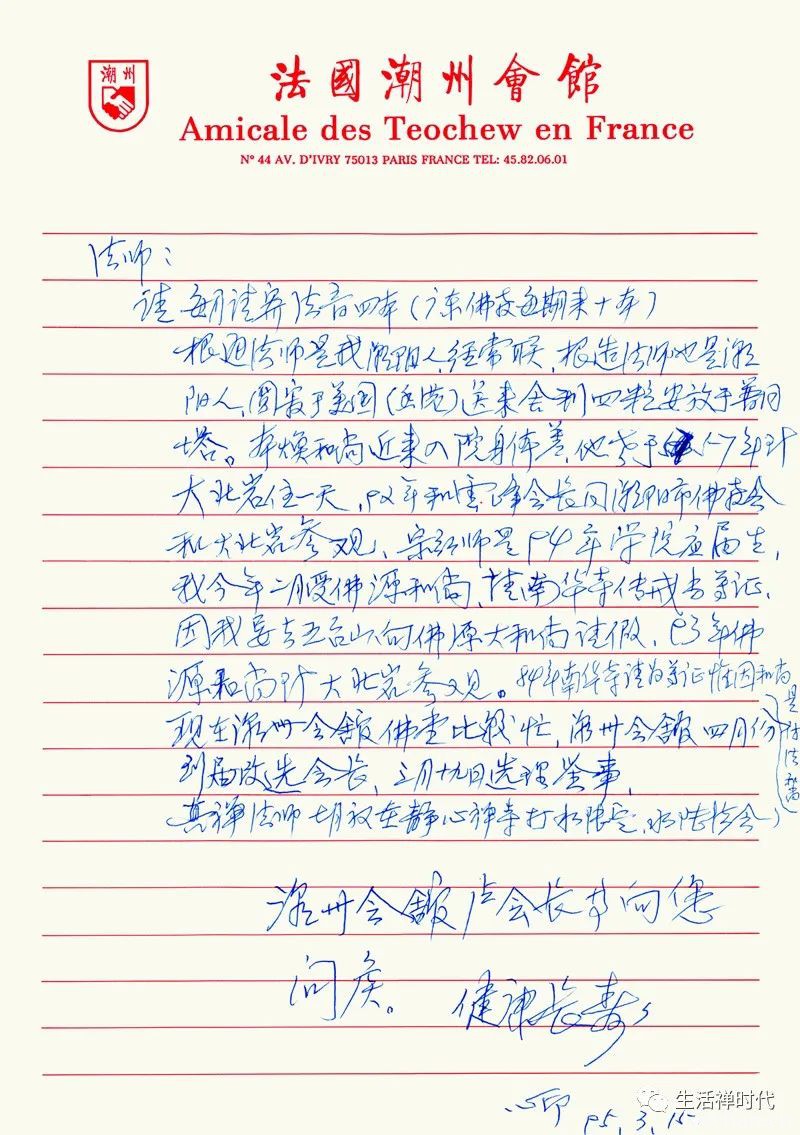 潮州
法國潮州會館
Amicale des Teochew en France
Nº 44 AV. D'IVRY 75013 PARIS FRANCE TEL: 45.82.06.01
法师：
请每月请寄法音四本（广东佛教每期来十本）
根通法师是我潮阳人，经常联，根造法师也是潮
阳人，圆寂于美国 送来舍利四粒安放于普同
塔。本焕和尚近来入院身体善，他曾于 87年到
大北岩住一天，92年和云峰会长同潮阳市佛教会
和大北岩参观，宗 师是94年学院应届生，
我今年二月受佛源和尚 南华寺传戒为尊证，
因我要去五台山向佛源大和尚请假，93年佛
源和尚到大北岩参观。84年南华寺请为尊证惟因和尚
是 法
现在潮州会馆佛堂比较忙，潮州会馆四月份
到届改选会长，三月十九日选理监事，
真禅法师 在静心禅寺打水陆 ，水陆 会
潮州会馆卢会长 向您
问候。 健康长寿
心印 95.3.15
生活禅时代